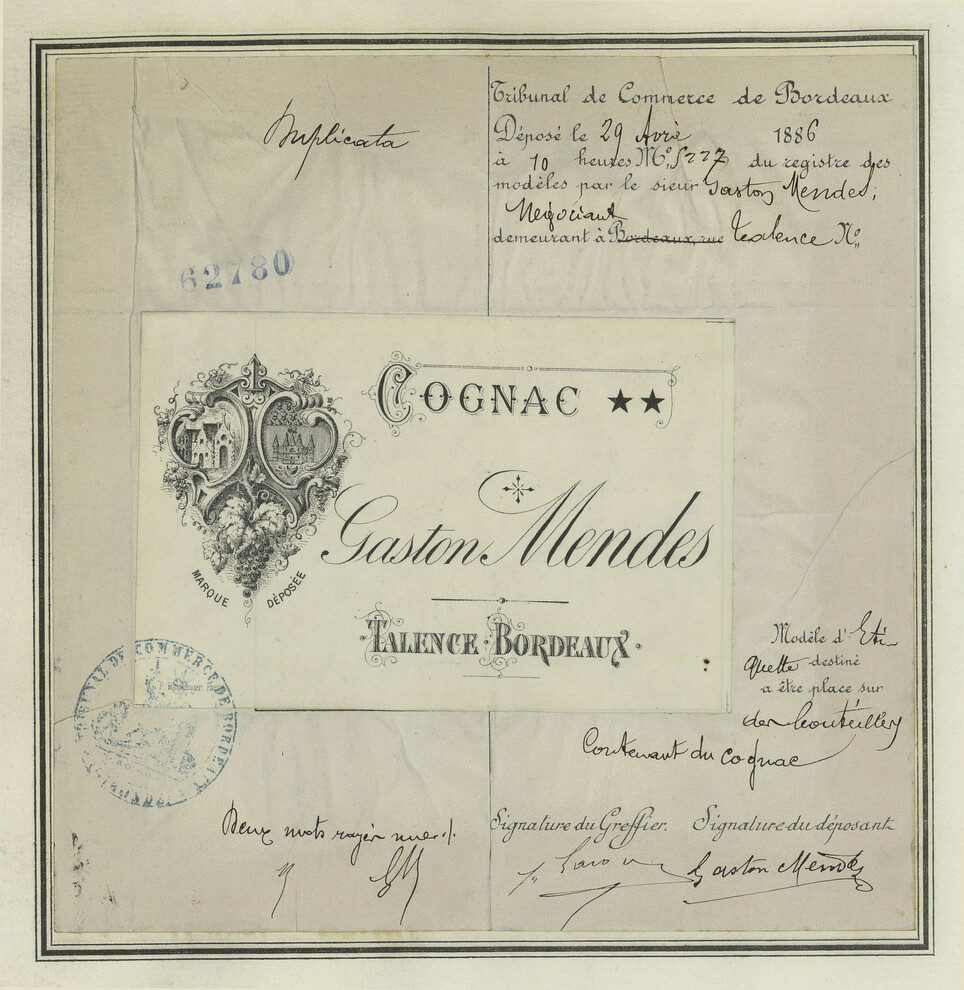 Duplicata
Tribunal de Commerce de Bordeaux
Déposé le 29 Avril 1886
à 10 heures M. No. 5227 du registre des
modèles par le sieur Gaston Mendes,
Négociant
demeurant à Bordeaux, rue Talence No.
62780
COGNAC ★★
Gaston Mendes
MARQUE DÉPOSÉE
TALENCE-BORDEAUX
Modèle d'Eti-
quette destiné
a être place sur
des bouteilles
Contenant du cognac
TRIBUNAL DE COMMERCE DE BORDEAUX
Deux mots rayés nuls
GM
Signature du Greffier. Signature du déposant
Gaston Mendes